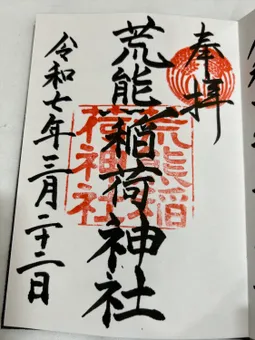 奉拝
荒能稲荷神社
荒熊稲
荷神社
令和七年三月二十二日